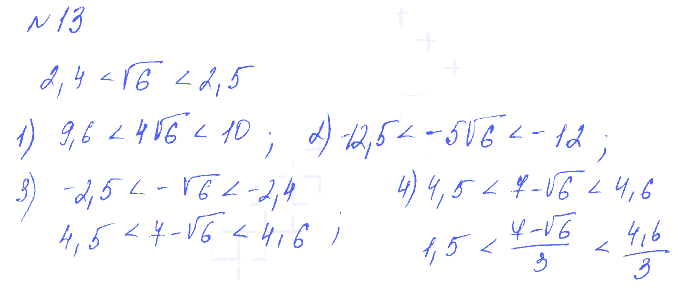 №13
2,4 < √6 < 2,5
1) 9,6 < 4√6 < 10 ; 2) -12,5 < -5√6 < -12 ;
3) -2,5 < -√6 < -2,4
4,5 < 7-√6 < 4,6 ;
4) 4,5 < 7-√6 < 4,6
1,5 < (7-√6)/3 < 4,6/3